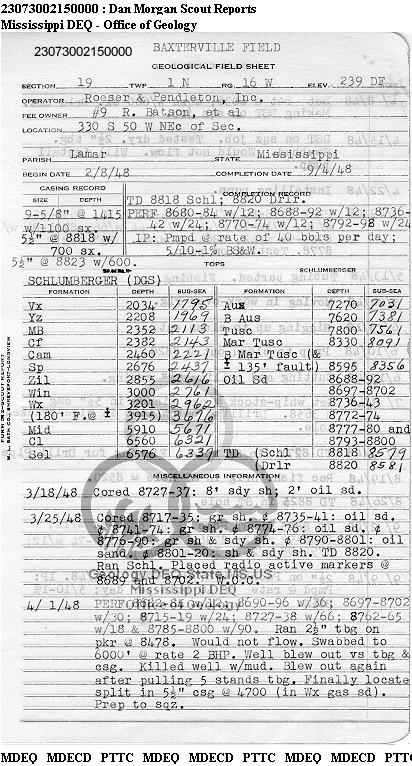 23073002150000 : Dan Morgan Scout Reports
Mississippi DEQ - Office of Geology
23073002150000 BAXTERVILLE FIELD
GEOLOGICAL FIELD SHEET
SECTION 19 TWP 1 N RG. 16 W ELEV. 239 DF
OPERATOR Roeser & Pendleton, Inc.
FEE OWNER #9 R. Batson, et al
LOCATION 330 S 50 W NEc of Sec.
PARISH Lamar STATE Mississippi
BEGIN DATE 2/8/48 COMPLETION DATE 9/4/48
CASING RECORD COMPLETION RECORD
SIZE DEPTH TD 8818 Schl; 8820 Drlr.
9-5/8" @ 1415 PERF 8680-84 w/12; 8688-92 w/12; 8736-
w/1100 sx. 42 w/24; 8770-74 w/12; 8792-98 w/24
5½" @ 8818 w/ IP: Pmpd @ rate of 40 bbls per day;
700 sx. 5/10-1% BS&W.
5½" @ 8823 w/600.
TOPS
SCHLUMBERGER (DGS) SCHLUMBERGER
FORMATION DEPTH SUB-SEA FORMATION DEPTH SUB-SEA
Vx 2034 1795 Aux 7270 7031
Yz 2208 1969 B Aus 7620 7381
MB 2352 2113 Tusc 7800 7561
Cf 2382 2143 Mar Tusc 8330 8091
Cam 2460 2221 B Mar Tusc (&
Sp 2676 2437 ± 135' fault) 8595 8356
Zil 2855 2616 Oil Sd 8688-92
Win 3000 2761 8697-8702
Wx 3201 2962 8736-43
(180' F.@ ± 3915) 3676 8772-74
Mid 5910 5671 8777-80 and
Cl 6560 6321 8793-8800
Sel 6576 6337 TD (Schl 8818 8579
(Drlr 8820 8581
MISCELLANEOUS INFORMATION
3/18/48 Cored 8727-37: 8' sdy sh; 2' oil sd.
3/25/48 Cored 8717-35: gr sh. ¢ 8735-41: oil sd.
¢ 8741-74: gr sh. ¢ 8774-76: oil sd. ¢
8776-90: gr sh & sdy sh. ¢ 8790-8801: oil
sand. ¢ 8801-20: sh & sdy sh. TD 8820.
Ran Schl. Placed radio active markers @
8689 and 8702. W.O.C.
Geology DEQ State MS US
Mississippi DEQ
4/ 1/48 PERFORATED w/12; 8690-96 w/36; 8697-8702
w/30; 8715-19 w/24; 8727-38 w/66; 8762-65
w/18 & 8785-8800 w/90. Ran 2½" tbg on
pkr @ 8478. Would not flow. Swabbed to
6000' @ rate 2 BHP. Well blew out vs tbg &
csg. Killed well w/mud. Blew out again
after pulling 5 stands tbg. Finally locate
split in 5½" csg @ 4700 (in Wx gas sd).
Prep to sqz.
MDEQ MDECD PTTC MDEQ MDECD PTTC MDEQ MDECD PTTC